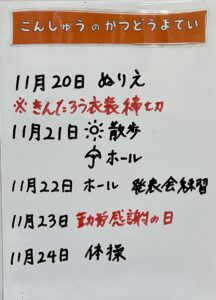 こんしゅうのかつどうよてい
11月20日 ぬりえ
※きんたろう衣装締切
11月21日 ☀ 散歩
☂ ホール
11月22日 ホール 発表会練習
11月23日 勤労感謝の日
11月24日 体操